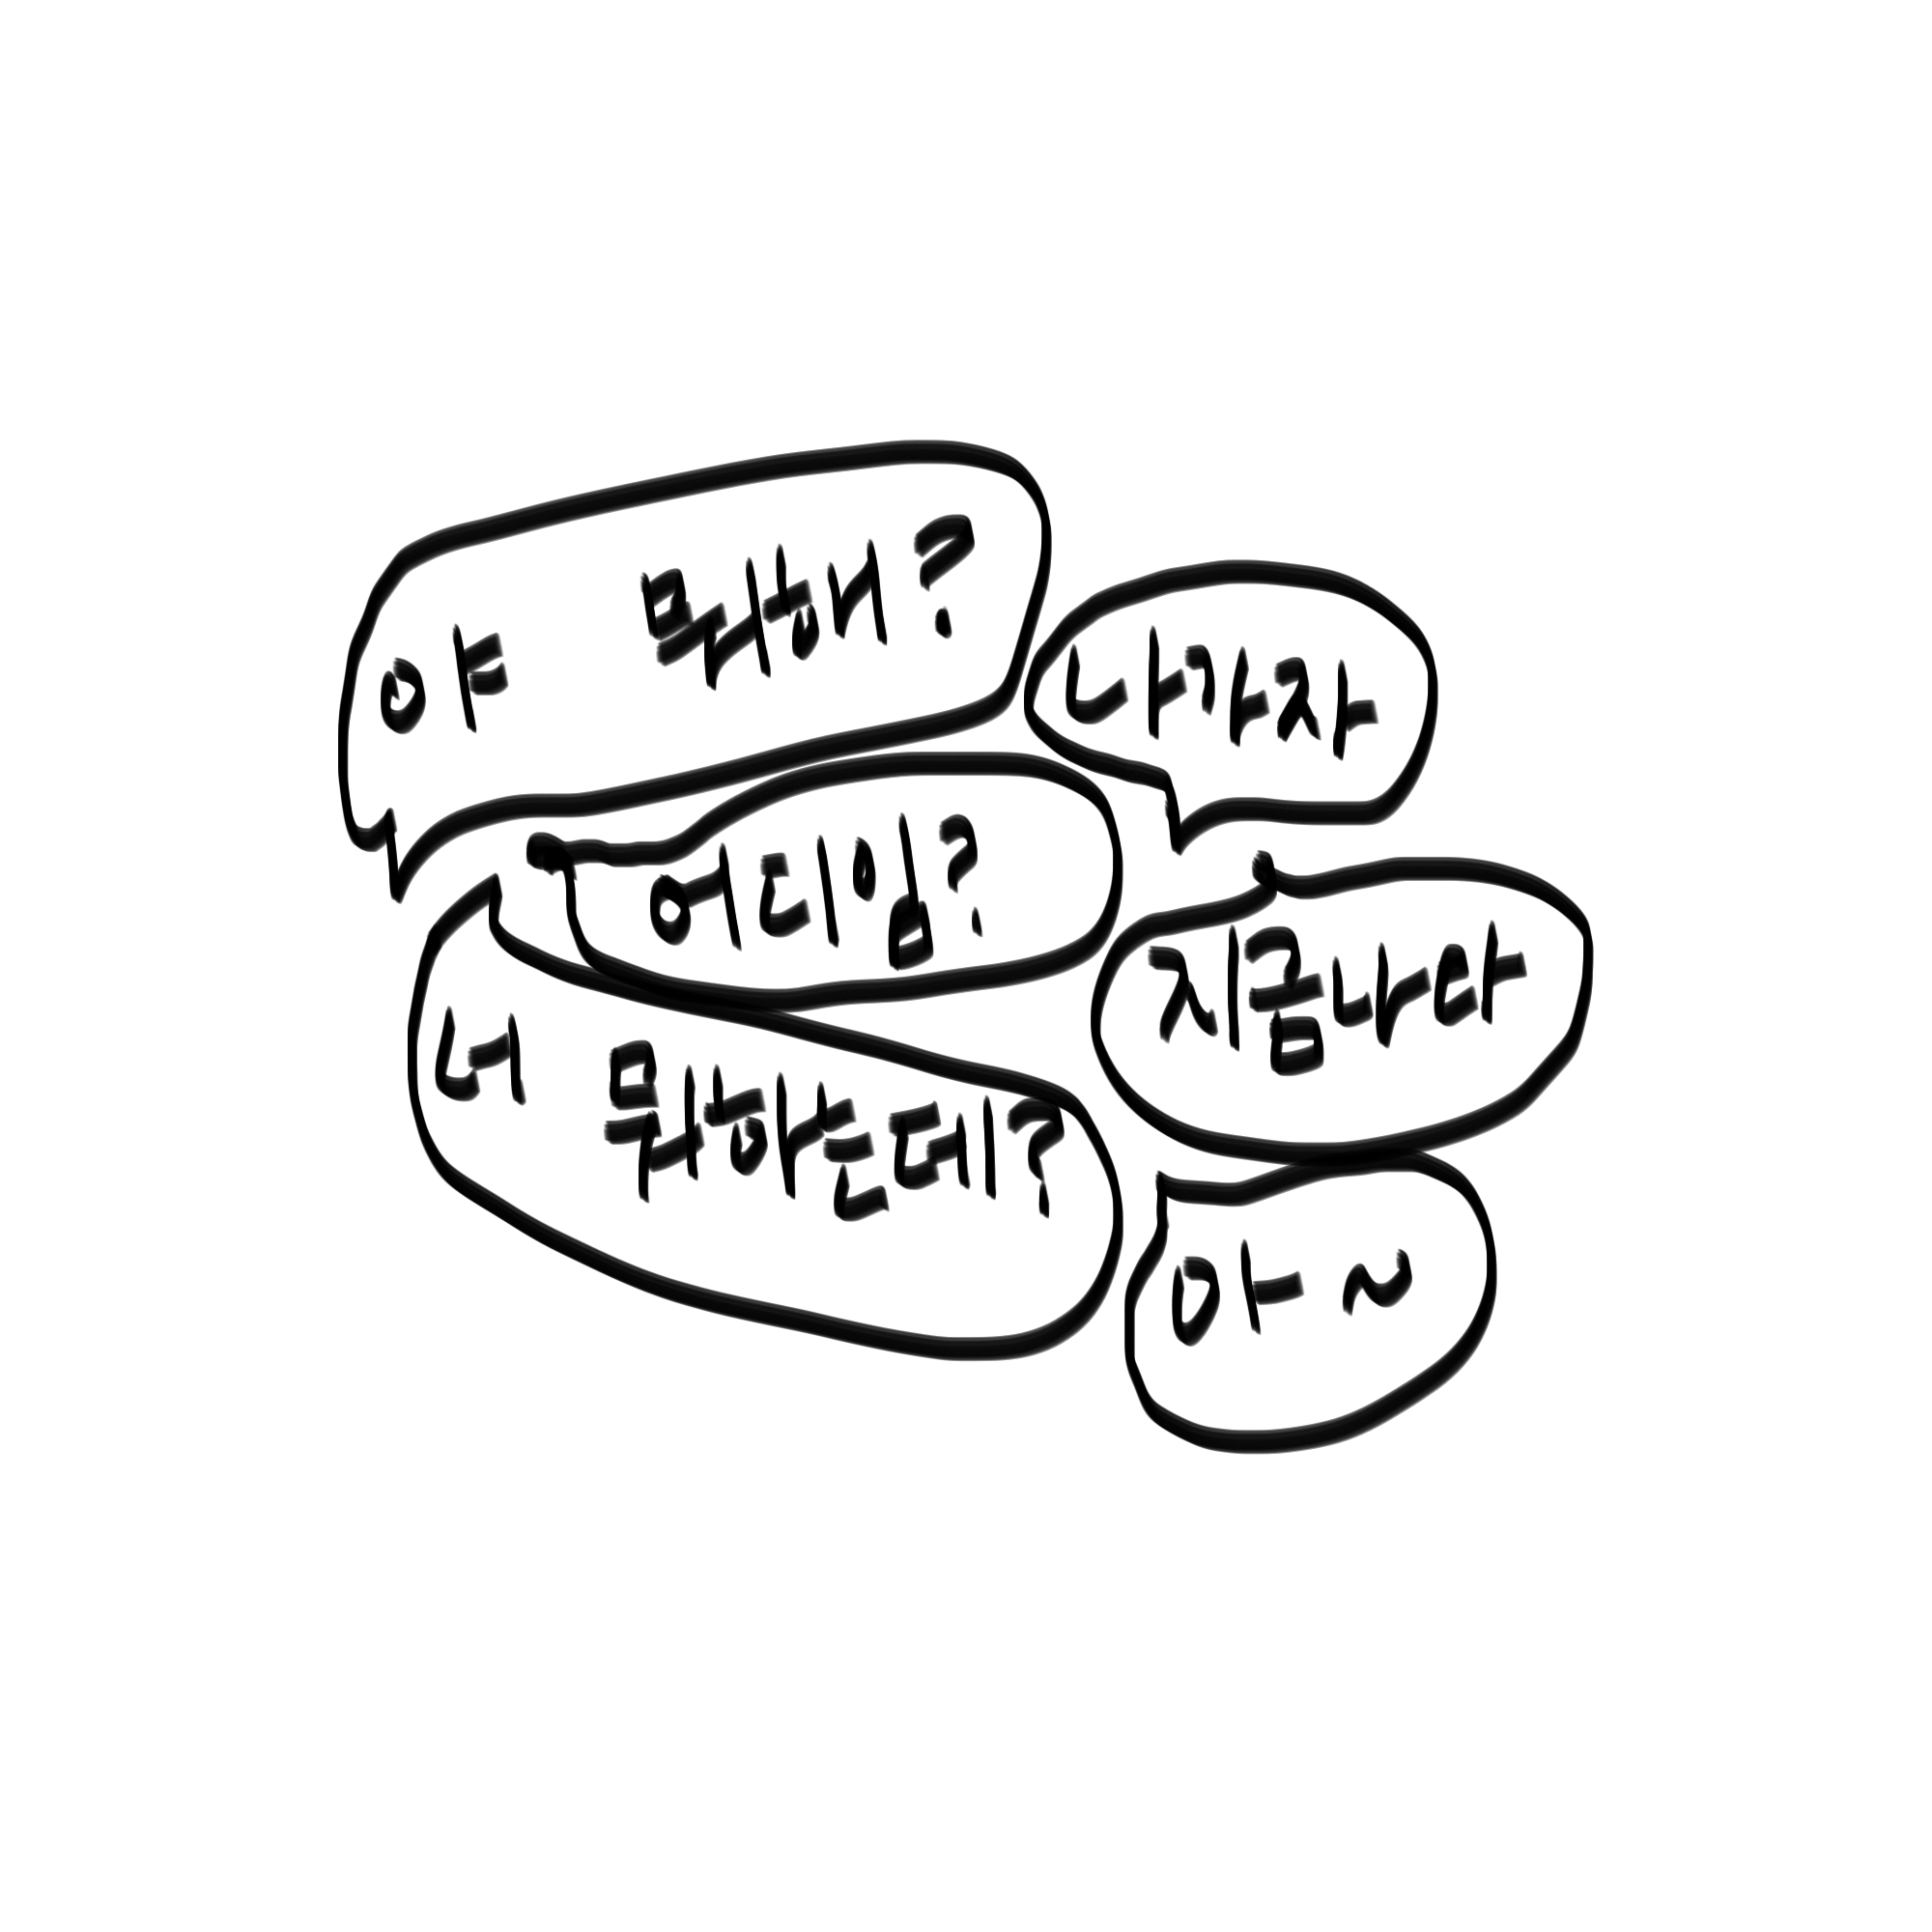 야 뭐해?
나가자
어디임?
지금나와
너 뭐하는데?
아~